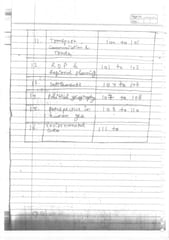 11. Transport Communication & Trade 100 to 101
12. RDP & Regional planning 101 to 103
13. Settlements 103 to 107
14. Political geography 107 to 108
15. Perspective in human geo 108 to 110
16. Environmental 111 to